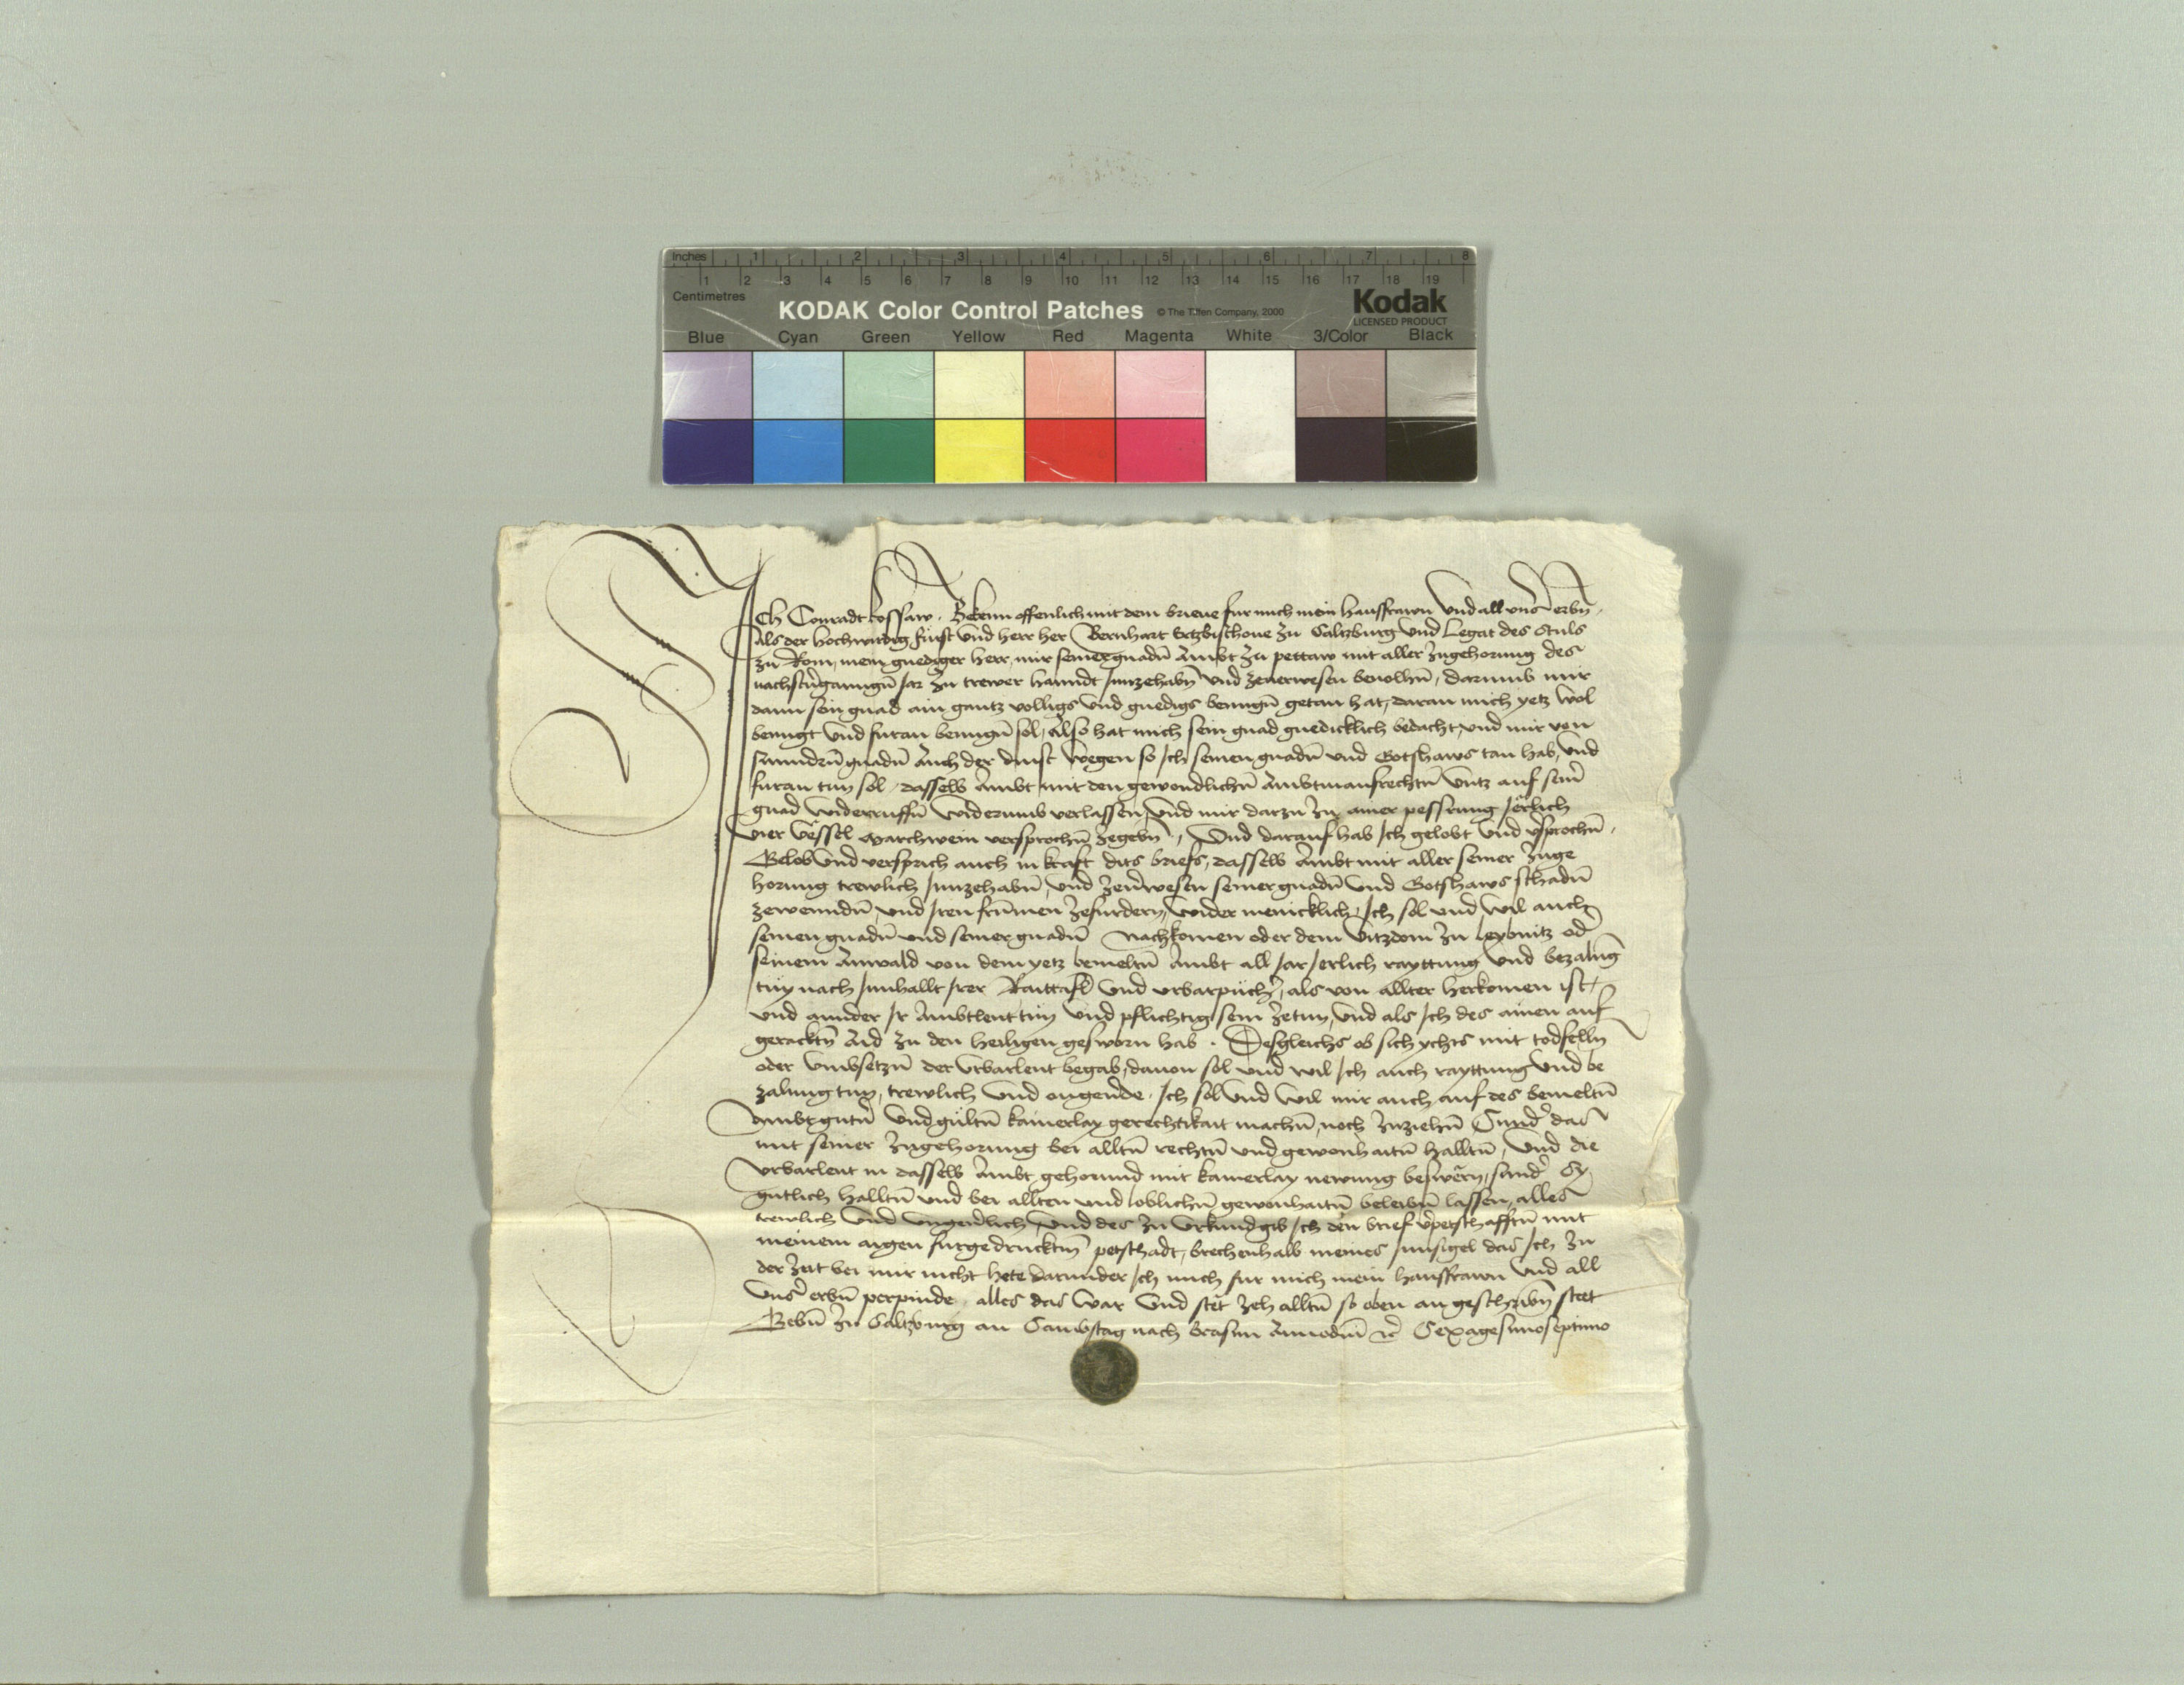 Inches 1 2 3 4 5 6 7 8
1 2 3 4 5 6 7 8 9 10 11 12 13 14 15 16 17 18 19
Centimetres
KODAK Color Control Patches © The Tiffen Company, 2000 Kodak
LICENSED PRODUCT
Blue Cyan Green Yellow Red Magenta White 3/Color Black
Ich Conradt Rossaw. Bekenn offenlich mit dem brieue fur mich mein hausfrawn Vnd all vnser erbn̄.
Als der hochwirdig fürst Vnd herr her Bernhart Ertzbischoue zu Saltzburg vnd Legat des Stuls
zu Rom, mein gnediger herr, mir seiner gnadn̄ Ambt zu pettaw mit aller zugehorung des
nachstuergangn̄ Jar zu trewer hanndt Innzehabn̄ Vnd zeuerwesen beuolhn̄, darumb mir
dann sein gnad ain gantz volligs Vnd gnedigs benugn̄ getan hat, daran mich yetz wol
benugt Vnd furan benugn̄ sol, Also hat mich sein gnad gnedicklich bedacht, vnd mir von
sunndrn̄ gnadn̄ Auch der dinst wegen so Ich seinen gnadn̄ vnd Gotshaws tan hab, vnd
furan tun sol, dasselb Ambt mit den gewondlichn̄ Ambtmansrechtn̄ Vntz auf seiner
gnad widerruffn̄ widerumb verlassen, Vnd mir darzu zu ainer pessrung Jërlich
Vier Vëssel Marchwein versprochn̄ zegebn̄, Vnd darauf hab Ich gelobt Vnd vsprochn̄,
Gelob Vnd versprich auch in kraft dits briefs, dasselb Ambt mit aller seiner zuge
horung trewlich Innzehabn̄, vnd zeuerwesen seiner gnadn̄ Vnd Gotshaws schadn̄
zewenndn̄, vnd Iren frumen zefurdern, wider menicklich, Ich sol vnd wil auch
seinen gnadn̄ vnd seiner gnadn̄ Nachkomen oder dem Vitzdom zu Leybnitz od
seinem Anwald von dem yetz bemeltn̄ Ambt all Jar Jerlich rayttung vnd bezalung
tun nach Innhallt Irer Raittafl Vnd vrbarpücher, als von allter herkomen ist,
vnd annder Ir Ambtleut tun Vnd pflichtig sein zetun, Vnd als Ich des ainen auf
gerecktn̄ Aid zu den heiligen gesworn hab. Desgleichs ob sich ychts mit todfelln
oder Vmbsetzn̄ der Vrbarleut begab, dauon sol vnd wil Ich auch rayttung Vnd be
zalung tun, trewlich Vnd ongeuerde, Ich sol Vnd wil mir auch auf des bemeltn̄
Ambt gutn̄ Vnd gültn̄ kainerlay gerechtikait machn̄, noch zuziehn̄ Sunder das
mit seiner zugehorung bei alltn̄ rechtn̄ vnd gewonhaitn̄ halltn̄, Vnd die
Vrbarleut in dasselb Ambt gehorund mit kainerlay newung beswërn, sunder Sy
gutlich halltn̄ Vnd bei allten vnd loblichn̄ gewonhaitn̄ beleibn̄ lassen, alles
trewlich Vnd Vngeuerlich, Vnd des zu vrkund gib Ich den brief vpetschafftn̄ mit
meinem aigen furgedrucktm̄ petschadt, brechenhalb meines Innsigel das Ich zu
der zeit bei mir nicht hete darunder Ich mich fur mich mein hausfrawn Vnd all
Vnser erbn̄ verpinde, alles das war Vnd stët zehalltn̄ so oben an geschribn̄ steet
Gebn̄ zu Saltzburg an Sambstag nach Erasmi Annodm̄ rc̄ Sexagesimoseptimo